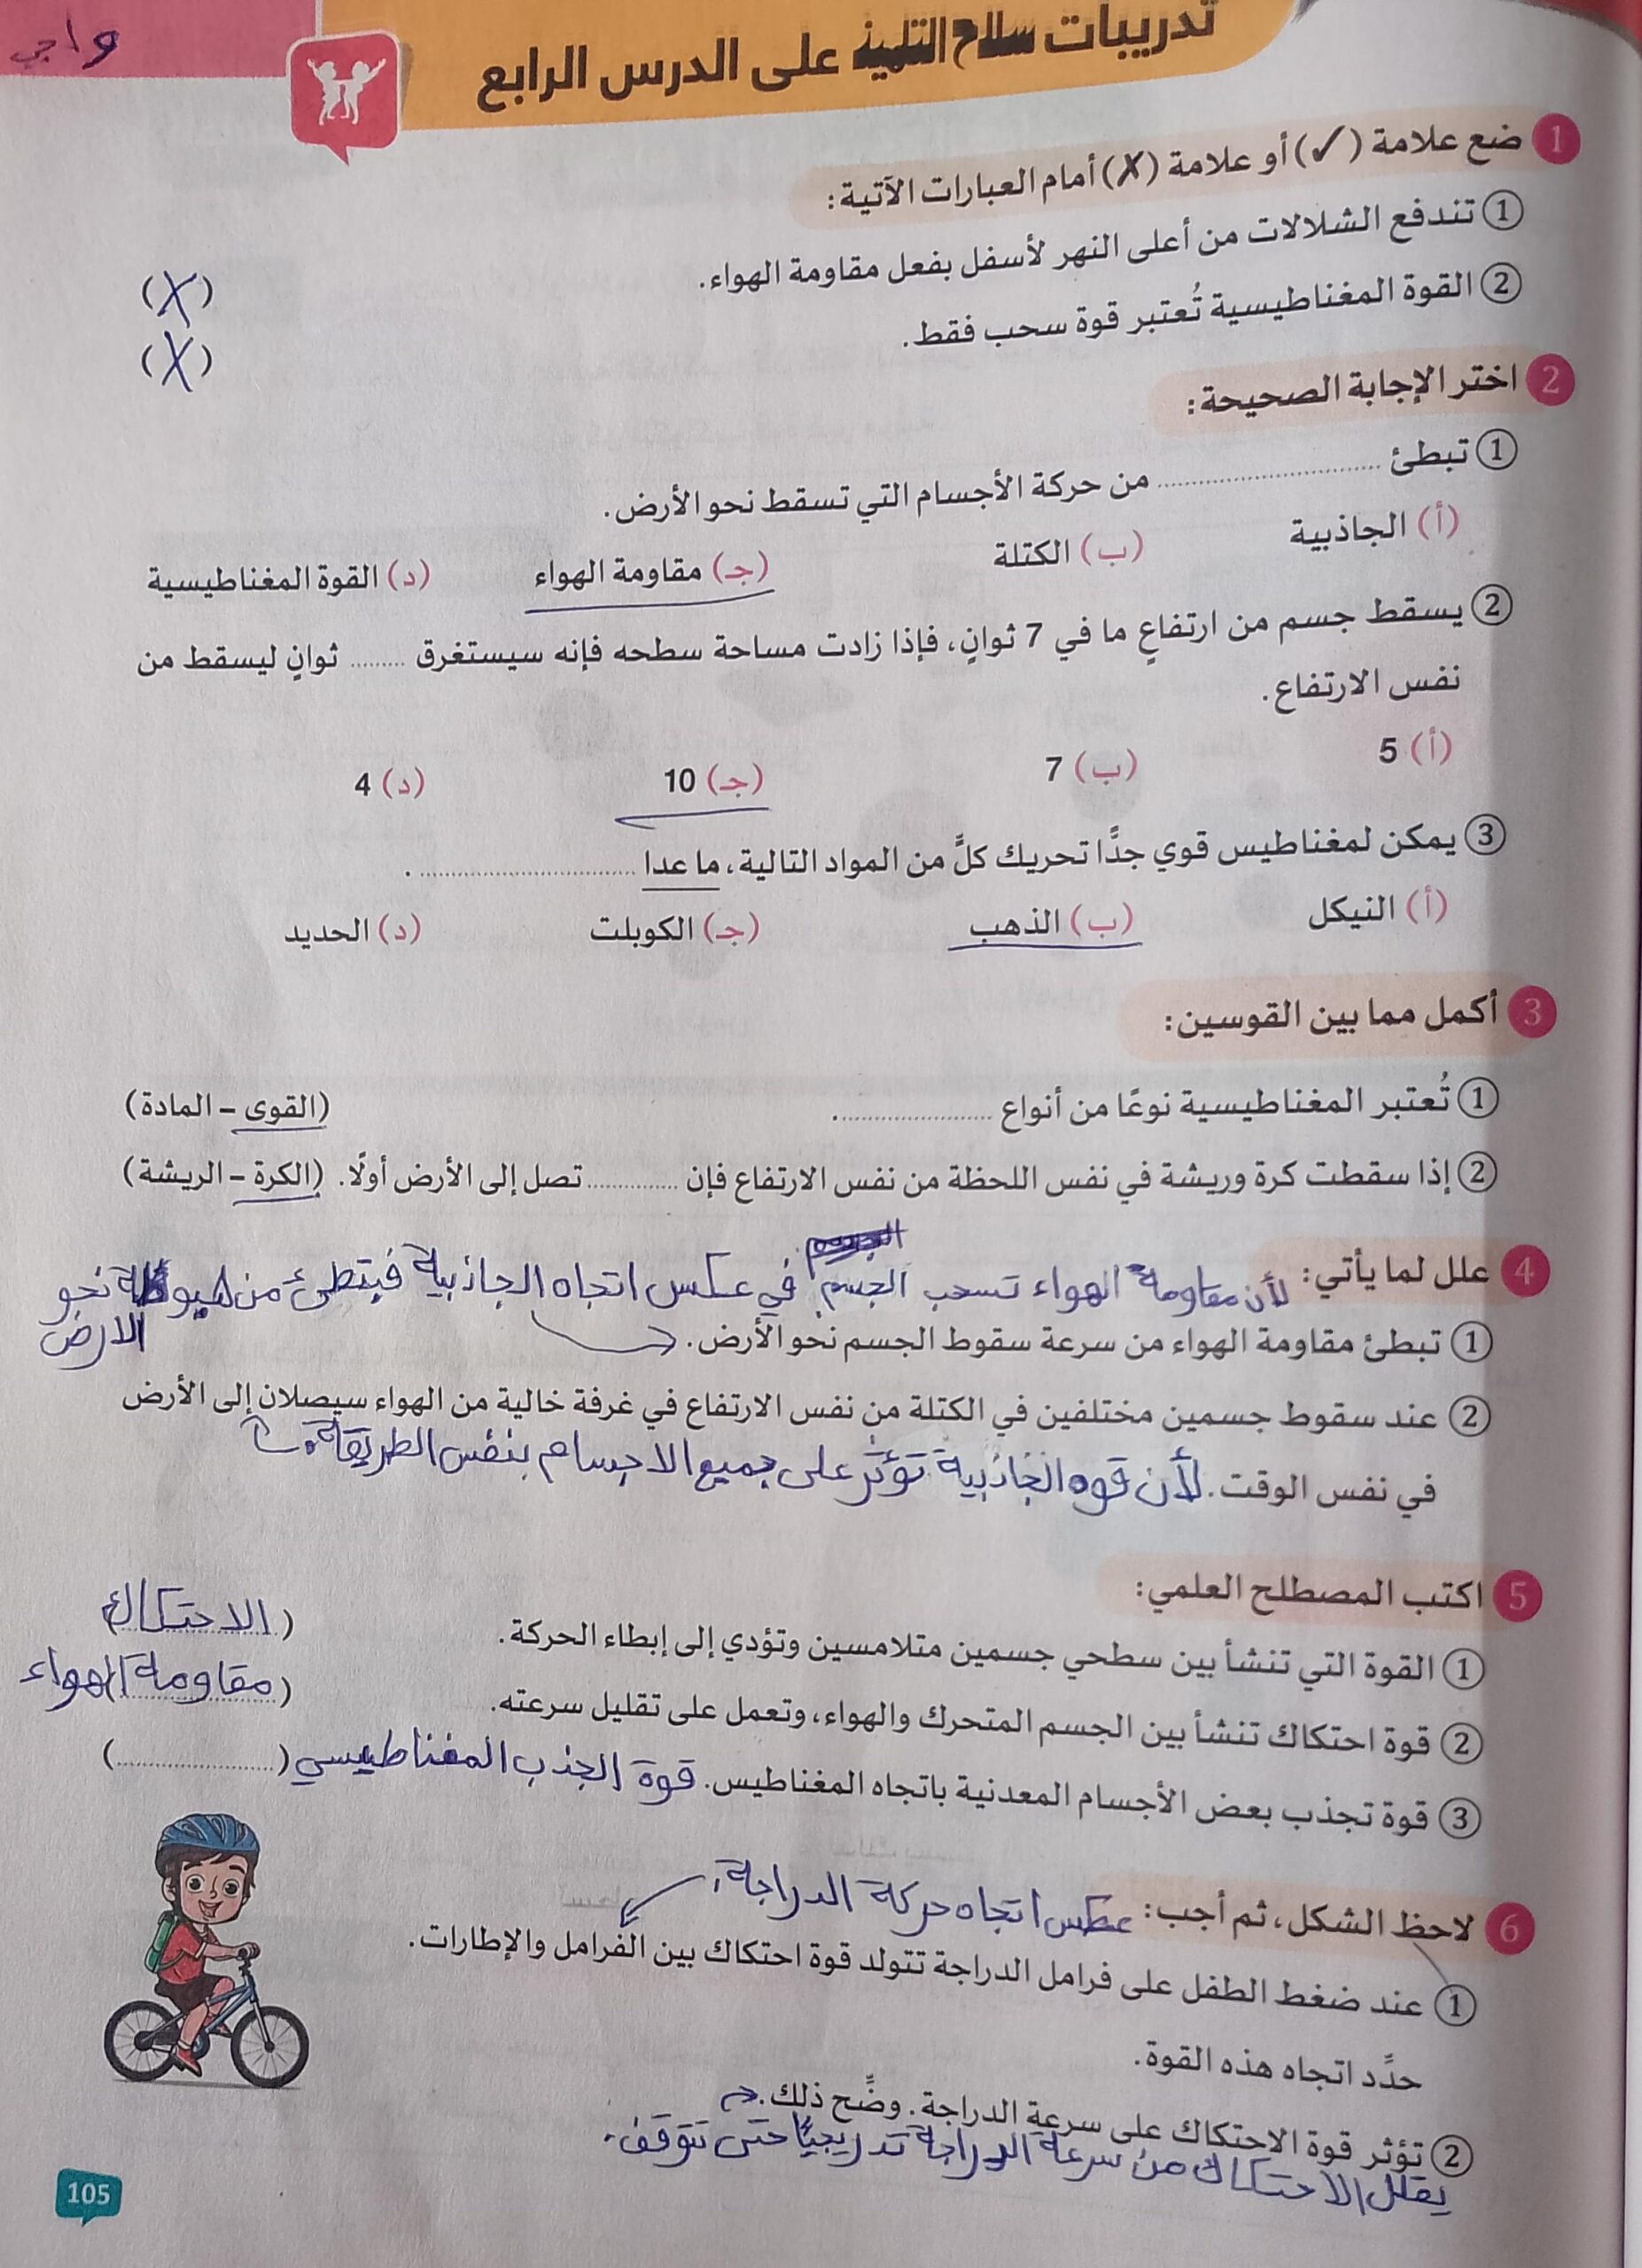 واجي
تدريبات سلاح التلميذ على الدرس الرابع
1 ضع علامة (✓) أو علامة (✗) أمام العبارات الآتية:
① تندفع الشلالات من أعلى النهر لأسفل بفعل مقاومة الهواء. (X)
② القوة المغناطيسية تُعتبر قوة سحب فقط. (X)
2 اختر الإجابة الصحيحة:
① تبطئ .............................. من حركة الأجسام التي تسقط نحو الأرض.
(أ) الجاذبية (ب) الكتلة (جـ) مقاومة الهواء (د) القوة المغناطيسية
② يسقط جسم من ارتفاعٍ ما في 7 ثوانٍ، فإذا زادت مساحة سطحه فإنه سيستغرق ........ ثوانٍ ليسقط من
نفس الارتفاع.
(أ) 5 (ب) 7 (جـ) 10 (د) 4
③ يمكن لمغناطيس قوي جدًّا تحريك كلٍّ من المواد التالية، ما عدا .............................. .
(أ) النيكل (ب) الذهب (جـ) الكوبلت (د) الحديد
3 أكمل مما بين القوسين:
① تُعتبر المغناطيسية نوعًا من أنواع ...................... . (القوى – المادة)
② إذا سقطت كرة وريشة في نفس اللحظة من نفس الارتفاع فإن ............. تصل إلى الأرض أولًا. (الكرة – الريشة)
4 علل لما يأتي: لأن مقاومة الهواء تسحب الجسم في عكس اتجاه الجاذبية فيتطئ من هبوطه نحو
الارض
① تبطئ مقاومة الهواء من سرعة سقوط الجسم نحو الأرض.
② عند سقوط جسمين مختلفين في الكتلة من نفس الارتفاع في غرفة خالية من الهواء سيصلان إلى الأرض
في نفس الوقت. لأن قوه الجاذبية تؤثر على جميع الاجسام بنفس الطريقة.
5 اكتب المصطلح العلمي:
① القوة التي تنشأ بين سطحي جسمين متلامسين وتؤدي إلى إبطاء الحركة. (الاحتكاك)
② قوة احتكاك تنشأ بين الجسم المتحرك والهواء، وتعمل على تقليل سرعته. (مقاومة الهواء)
③ قوة تجذب بعض الأجسام المعدنية باتجاه المغناطيس. قوة الجذب المغناطيسي (......................)
6 لاحظ الشكل، ثم أجب: عكس اتجاه حركة الدراجة.
① عند ضغط الطفل على فرامل الدراجة تتولد قوة احتكاك بين الفرامل والإطارات.
حدِّد اتجاه هذه القوة.
② تؤثر قوة الاحتكاك على سرعة الدراجة. وضِّح ذلك.
يقلل الاحتكاك من سرعة الدراجة تدريجيًا حتى تتوقف.
105